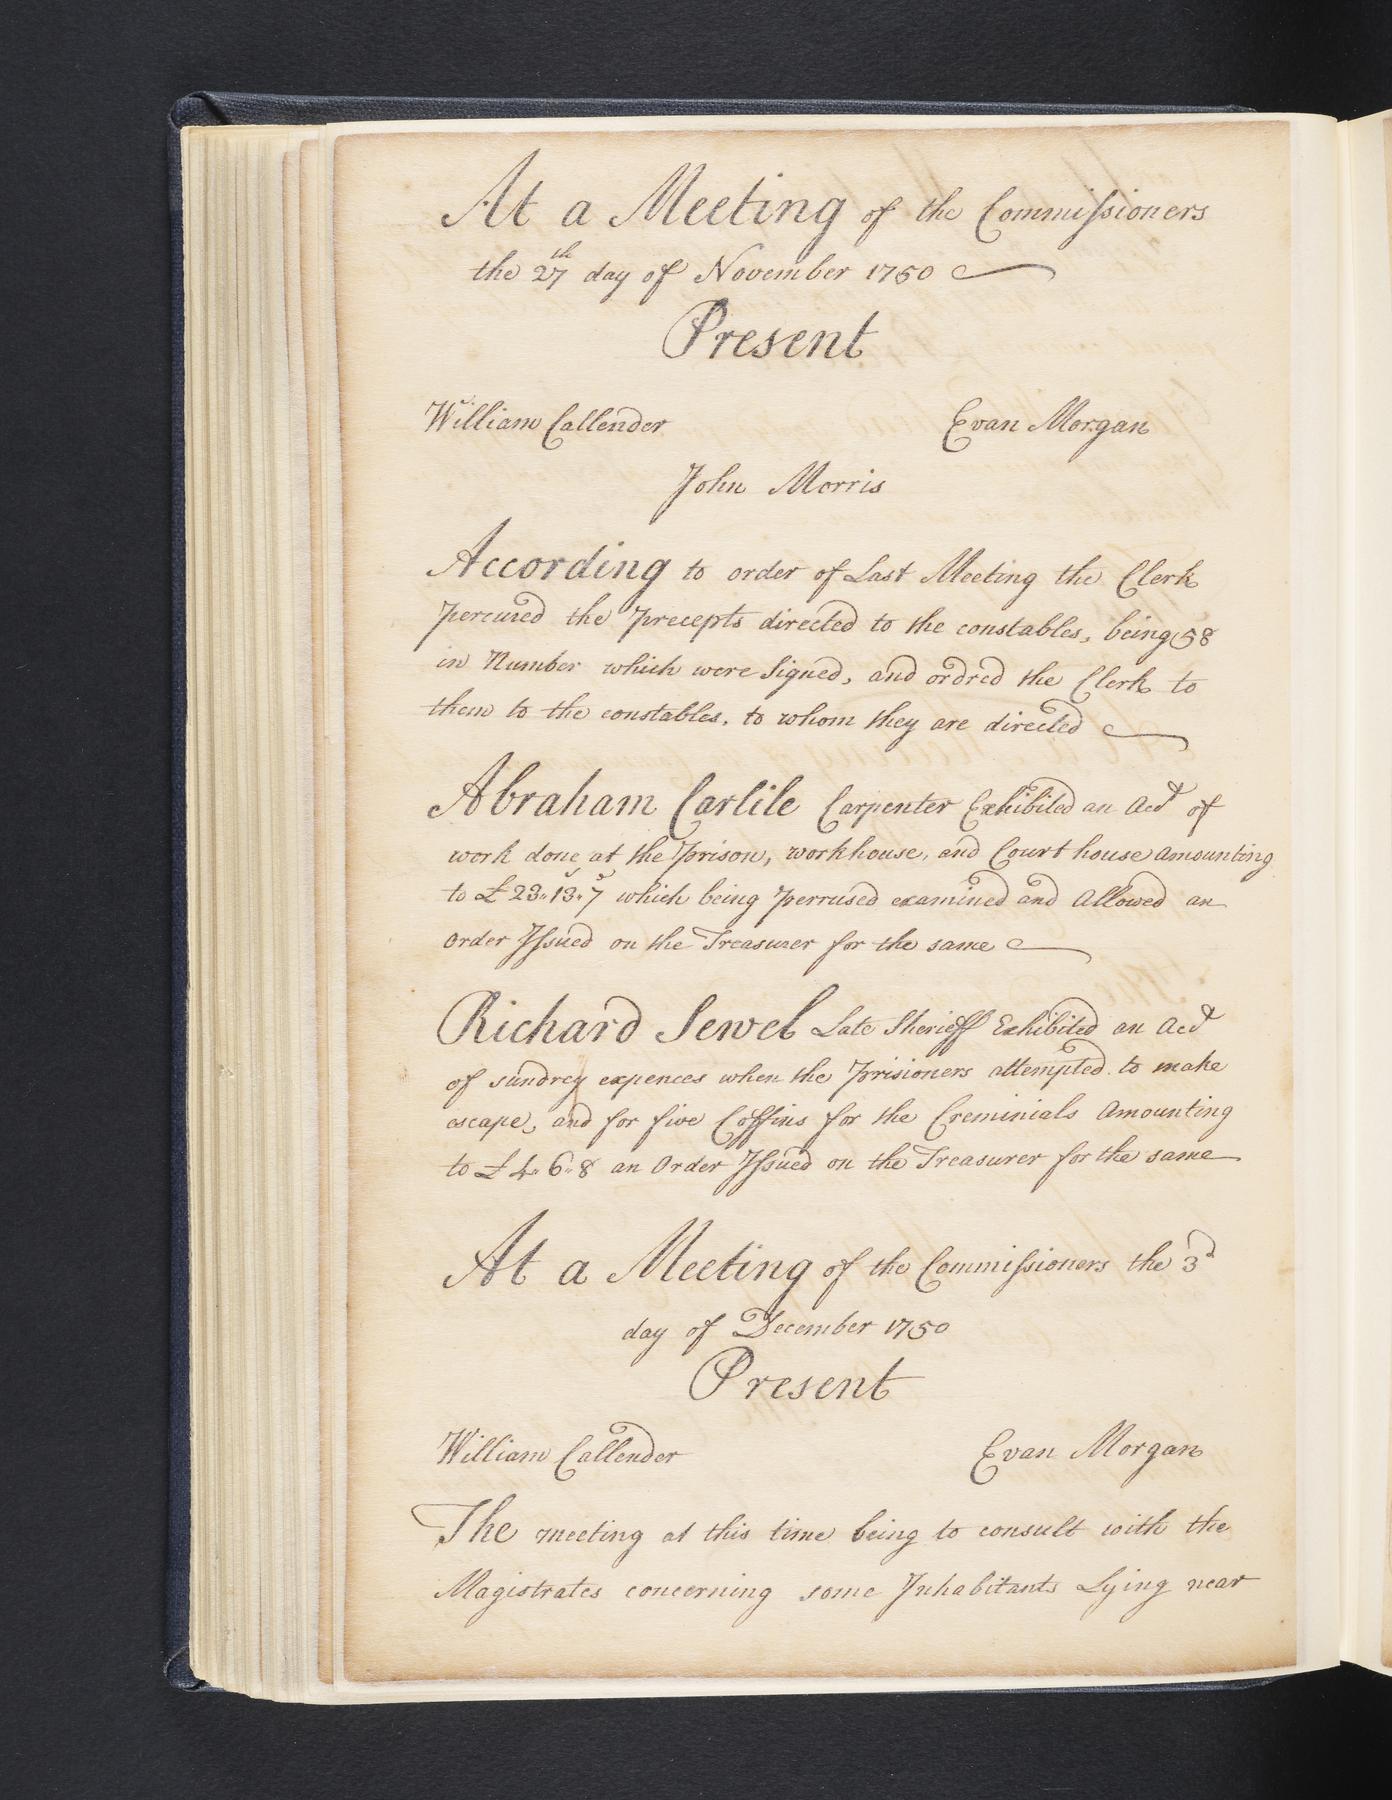 At a Meeting of the Commissioners
the 27th day of November 1750
Present
William Callender Evan Morgan
John Morris
According to order of Last Meeting the Clerk
percured the precepts directed to the constables, being 58
in Number which were Signed, and ordred the Clerk to
them to the constables, to whom they are directed
Abraham Carlile Carpenter Exhibited an Acct of
work done at the prison, workhouse, and Court house Amounting
to £23..13..7 which being perrused examined and Allowed an
Order Issued on the Treasurer for the same
Richard Sewel Late Sherieff Exhibited an Acct
of sundrey expences when the prisioners attempted to make
escape, and for five Coffins for the Creminials Amounting
to £4..6..8 an Order Issued on the Treasurer for the same
At a Meeting of the Commissioners the 3d
day of December 1750
Present
William Callender Evan Morgan
The meeting at this time being to consult with the
Magistrates concerning some Inhabitants Lying near